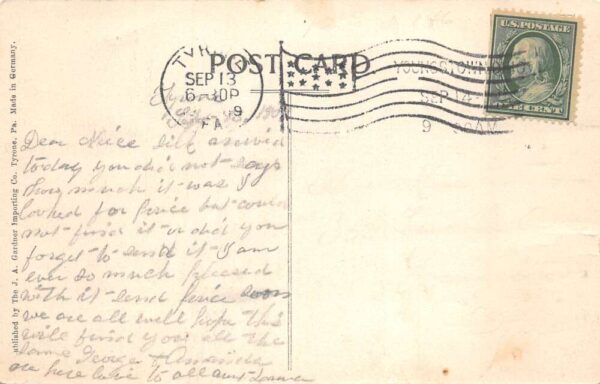 POST CARD
U.S. POSTAGE
TYRONE
SEP 13
6 30P
9
PA.
YOUNGSTOWN
SEP 14
9
CENT
Tyrone
Sept 13, 190
Dear Niece Silk arrived
today you did not say
how much it was I
looked for price but could
not find it or did you
forget to send it I am
ever so much pleased
with it send price soon
we are all well hope this
will find you all the
same George Amanda
are here love to all aunt
Published by The J. A. Gardner Importing Co. Tyrone, Pa. Made in Germany.